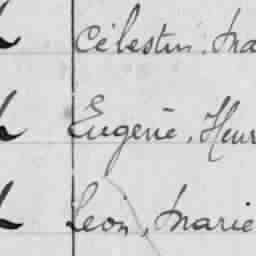 Célestin, Ma
Eugène, Henr
Léon, Marie